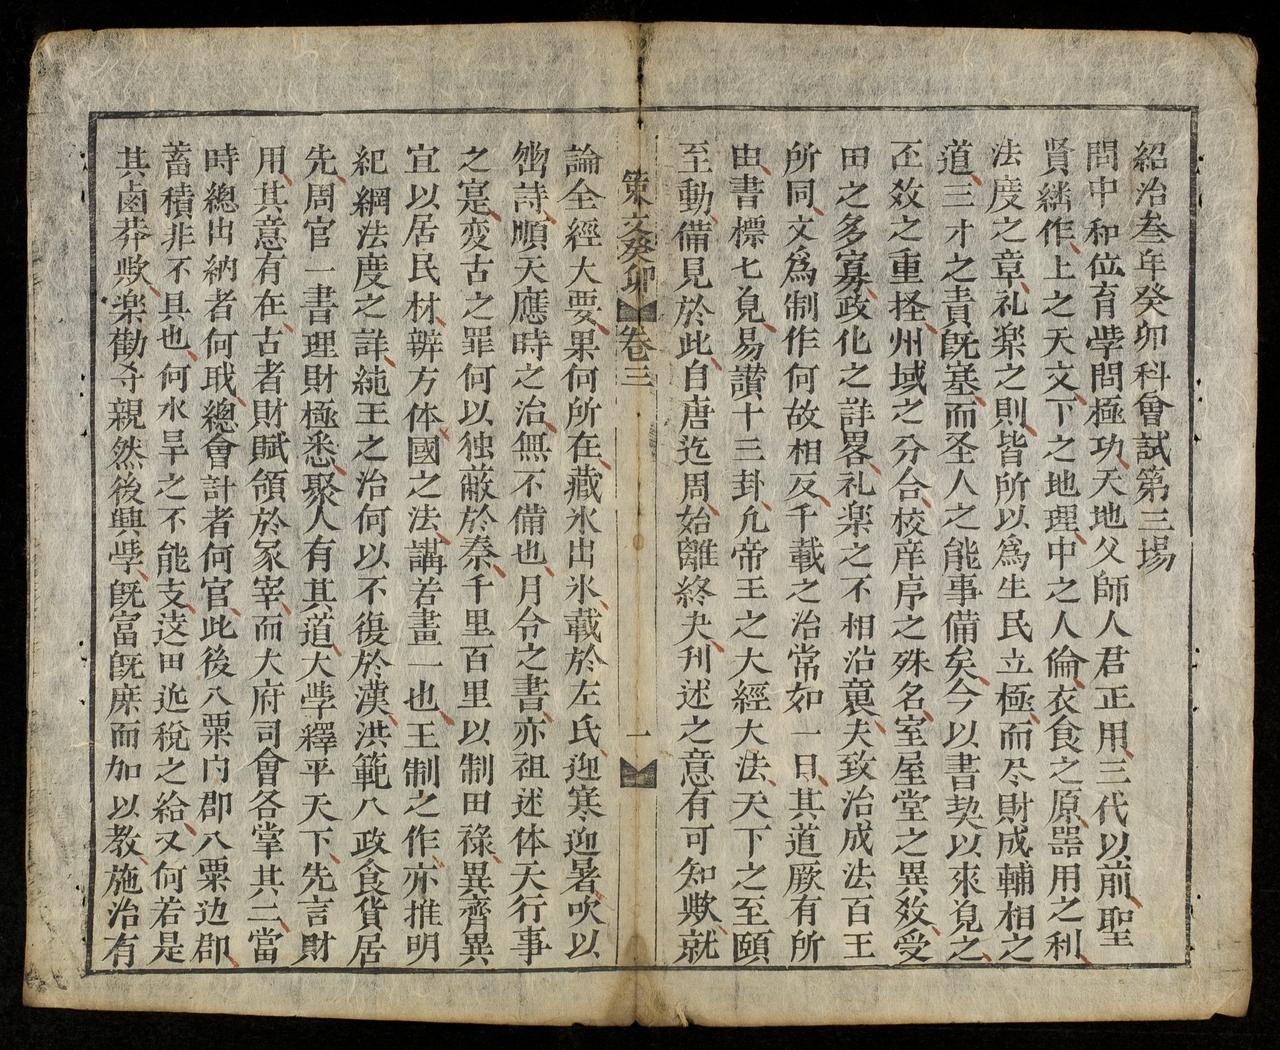 紹治叁年癸卯科會試第三場
問中和位育學問極功天地父師人君正用三代以前聖
賢繼作上之天文下之地理中之人倫衣食之原噐用之利
法度之章礼楽之則皆所以爲生民立極而尽財成輔相之
道三才之責既塞而圣人之能事備矣今以書契以來見之
丕效之重烃州域之分合校庠序之殊名室屋堂之異效受
田之多寡政化之詳畧礼楽之不相沿襲夫致治成法百王
所同文爲制作何故相反千載之治常如一日其道厥有所
由書標七見易讃十三卦允帝王之大經大法天下之至頤
至動備見於此自唐迄周始離終夬刋述之意有可知欺就
策文癸卯 卷三 一
論全經大要果何所在藏氷出氷載於左氏迎寒迎暑吹以
豳詩順天應時之治無不備也月令之書亦祖述体天行事
之寔变古之罪何以独蔽於秦千里百里以制田祿異齊異
宜以居民材辨方体國之法講若畫一也王制之作亦推明
紀綱法度之詳純王之治何以不復於漢洪範八政食貨居
先周官一書理財極悉聚人有其道大學釋平天下先言財
用其意有在古者財賦領於冢宰而大府司會各掌其二當
時總出納者何戝總會計者何官此後八粟内郡八粟边郡
蓄積非不具也何水旱之不能支逩田迯稅之給又何若是
其鹵莽欺楽勸夺親然後興學既富既庶而加以教施治有